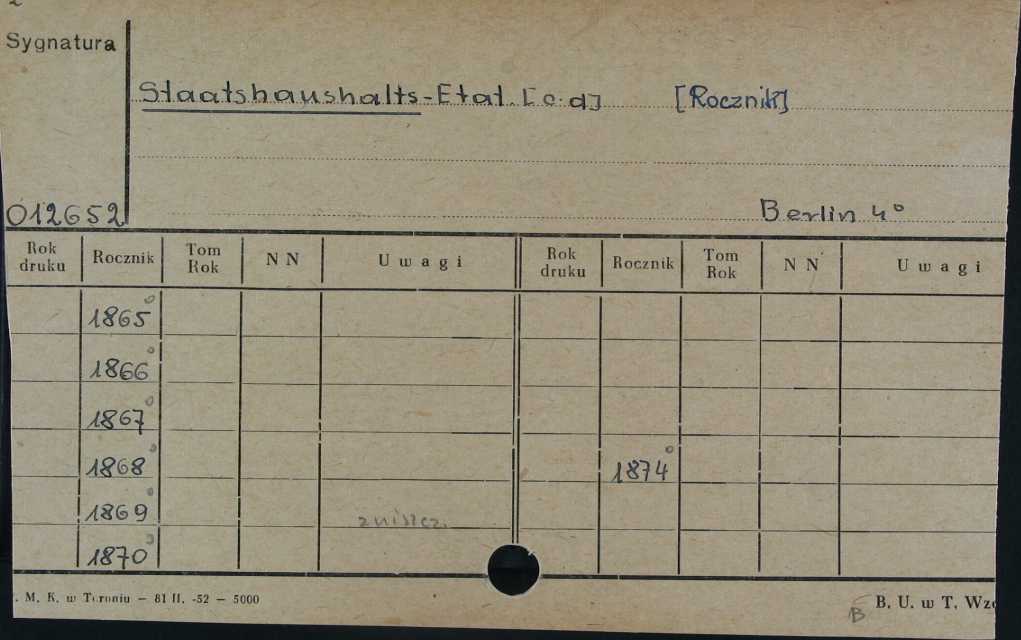 Sygnatura
Staatshaushalts-Etat. [c.d] [Rocznik]
012652 Berlin 4°
Rok druku Rocznik Tom Rok NN Uwagi Rok druku Rocznik Tom Rok NN Uwagi
1865°
1866°
1867°
1868° 1874°
1869° zniszcz.
1870°
. M. K. w Toruniu — 81 II. -52 — 5000 B B. U. w T. Wzó